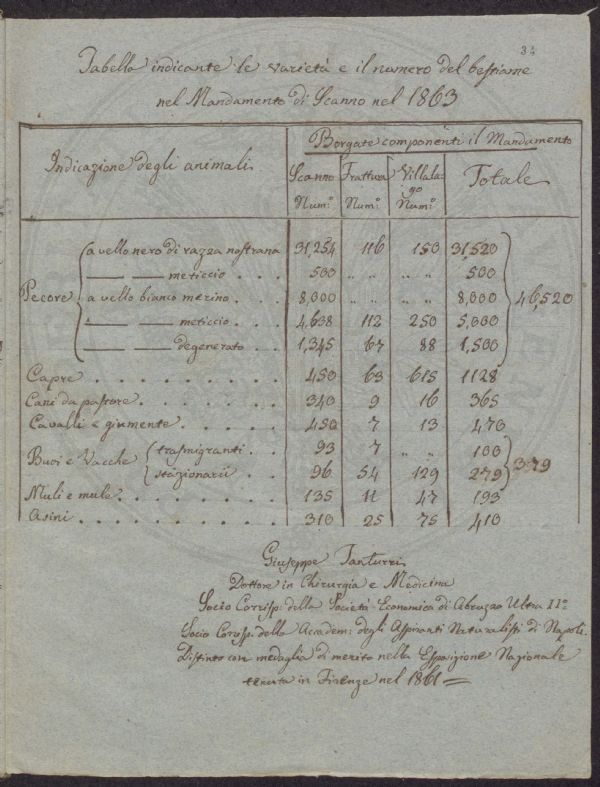 34
Tabella indicante le varietà e il numero del bestiame
nel Mandamento di Scanno nel 1863
Indicazione degli animali
Borgate componenti il Mandamento
Scanno Num.º
Frattura Num.º
Villalago Num.º
Totale
Pecore
a vello nero di razza nostrana 31,254 116 150 31,520
—— —— meticcio . . . 500 " " " " 500
a vello bianco merino . . . 8,000 " " " " 8,000
46,520
—— —— meticcio . . . 4,638 112 250 5,000
—— —— degenerato . . . 1,345 67 88 1,500
Capre . . . . . . . . . . 450 63 615 1128
Cani da pastore . . . . . . . 340 9 16 365
Cavalli e giumente . . . . . 450 7 13 470
Buoi e Vacche
trasmigranti . . . 93 7 " " 100
stazionarii . . . 96 54 129 279
379
Muli e mule . . . . . . . . 135 11 47 193
Asini . . . . . . . . . . 310 25 75 410
Giuseppe Tanturri
Dottore in Chirurgia e Medicina
Socio Corrisp. della Società Economica di Abruzzo Ultra IIº
Socio Corrisp. della Accadem. degli Aspiranti Naturalisti di Napoli.
Distinto con medaglia di merito nella Esposizione Nazionale
tenuta in Firenze nel 1861 =